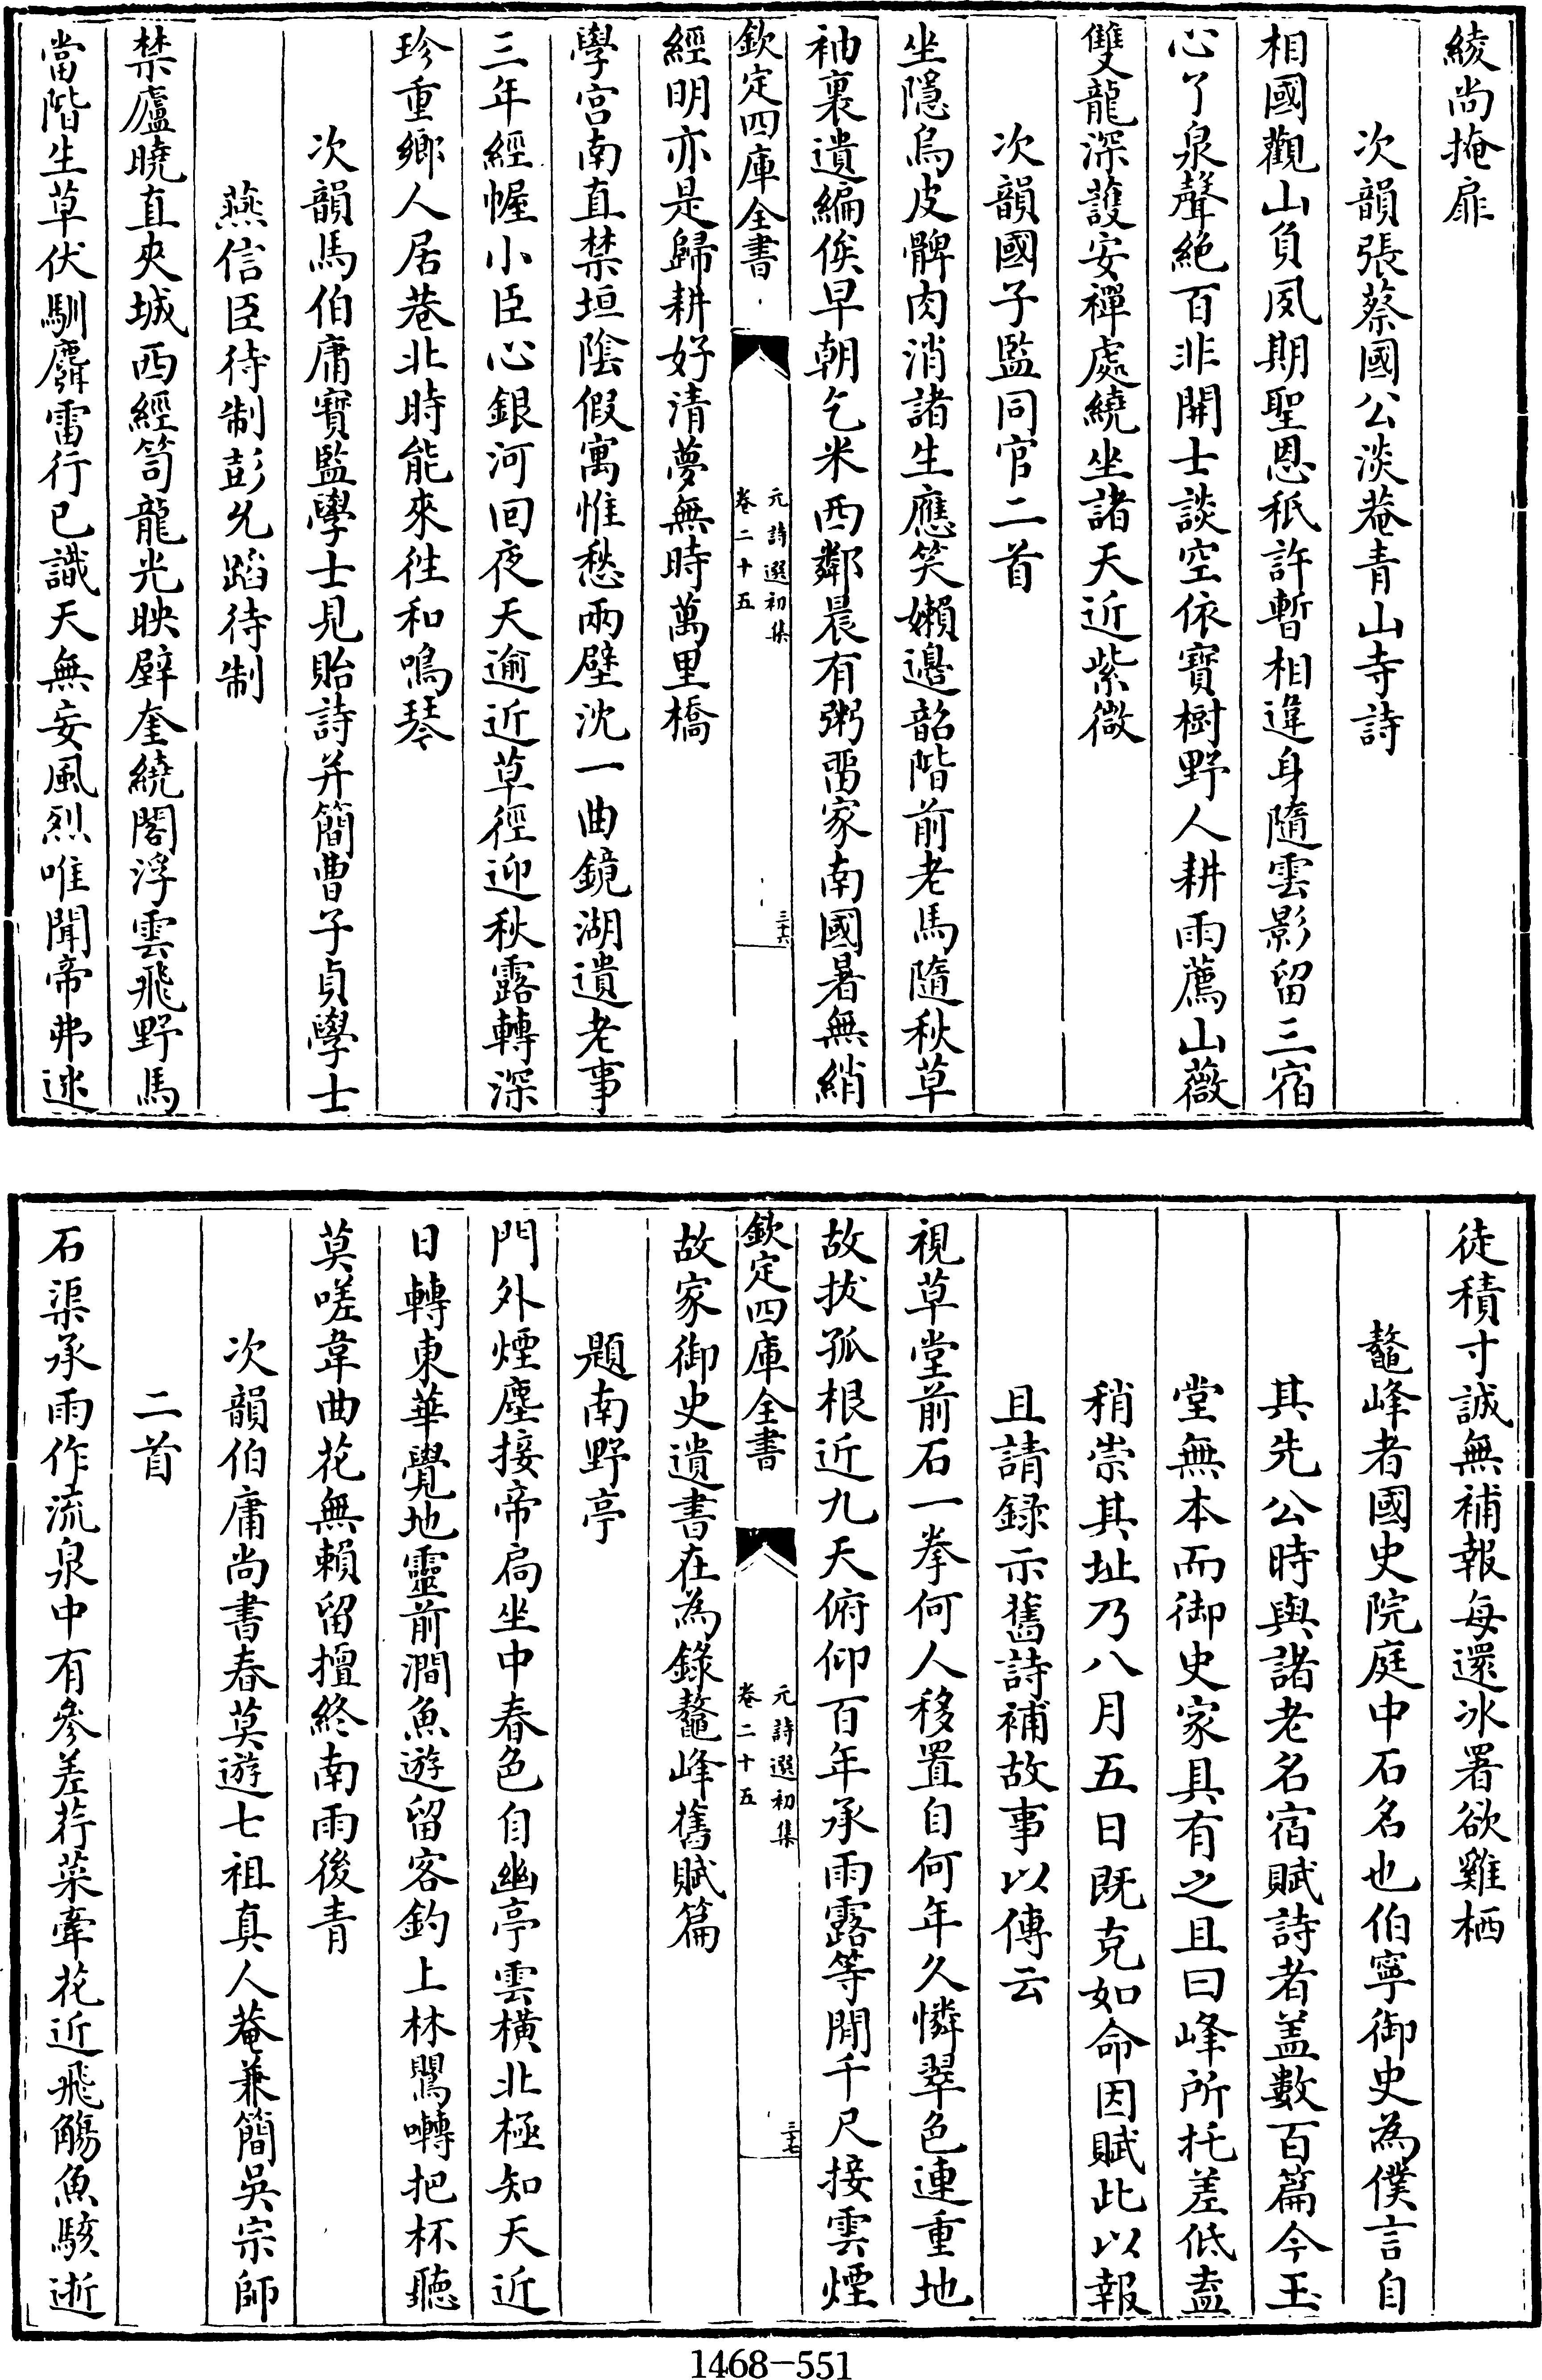 綾尚掩扉
次韻張蔡國公淡菴青山寺詩
相國觀山負夙期聖恩秖許暫相違身隨雲影留三宿
心了泉聲絶百非開士談空依寳樹野人耕雨薦山薇
雙龍深護安禪處繞坐諸天近紫微
次韻國子監同官二首
坐隱烏皮髀肉消諸生應笑嬾邊韶階前老馬隨秋草
袖裏遺編俟早朝乞米西鄰晨有粥畱家南國暑無綃
欽定四庫全書
元詩選初集
卷二十五
三十六
經明亦是歸耕好清夢無時萬里橋
學宫南直禁垣陰假寓惟愁兩壁沈一曲鏡湖遺老事
三年經幄小臣心銀河回夜天逾近草徑迎秋露轉深
珍重鄉人居巷北時能來往和鳴琴
次韻馬伯庸寳監學士見貽詩并簡曹子貞學士
燕信臣待制彭允蹈待制
禁廬曉直夾城西經笥龍光映壁奎繞閣浮雲飛野馬
當階生草伏馴麛雷行已識天無妄風烈唯聞帝弗迷
徒積寸誠無補報每還冰署欲雞栖
鼇峰者國史院庭中石名也伯寧御史為僕言自
其先公時與諸老名宿賦詩者盖數百篇今玉
堂無本而御史家具有之且曰峰所托差低盍
稍崇其址乃八月五日既克如命因賦此以報
且請録示舊詩補故事以傳云
視草堂前石一拳何人移置自何年久憐翠色連重地
故拔孤根近九天俯仰百年承雨露等閒千尺接雲煙
欽定四庫全書
元詩選初集
卷二十五
三十七
故家御史遺書在為錄鼇峰舊賦篇
題南野亭
門外煙塵接帝扃坐中春色自幽亭雲橫北極知天近
日轉東華覺地靈前澗魚遊留客釣上林鶯囀把杯聽
莫嗟韋曲花無賴留擅終南雨後青
次韻伯庸尚書春莫遊七祖真人菴兼簡吳宗師
二首
石渠承雨作流泉中有參差荇菜牽花近飛觴魚駭逝
1468-551